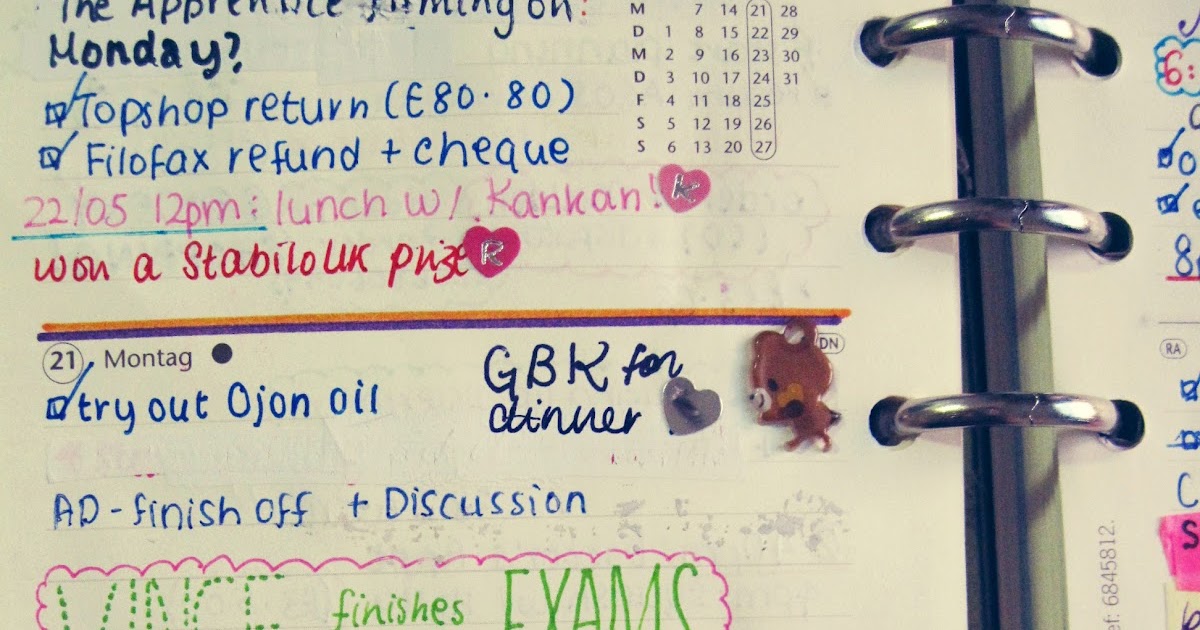 The Apprentice filming on:
Monday?
M 7 14 21 28
D 1 8 15 22 29
M 2 9 16 23 30
D 3 10 17 24 31
F 4 11 18 25
S 5 12 19 26
S 6 13 20 27
Topshop return (£80.80)
Filofax refund + cheque
22/05 12pm: lunch w/. Kankan! K
won a Stabilo UK prize R
21 Montag
DN
GBK for
dinner
try out Ojon oil
AD - finish off + Discussion
VINCE finishes EXAMS
6:
8
RA
C
S
ef: 6845812.